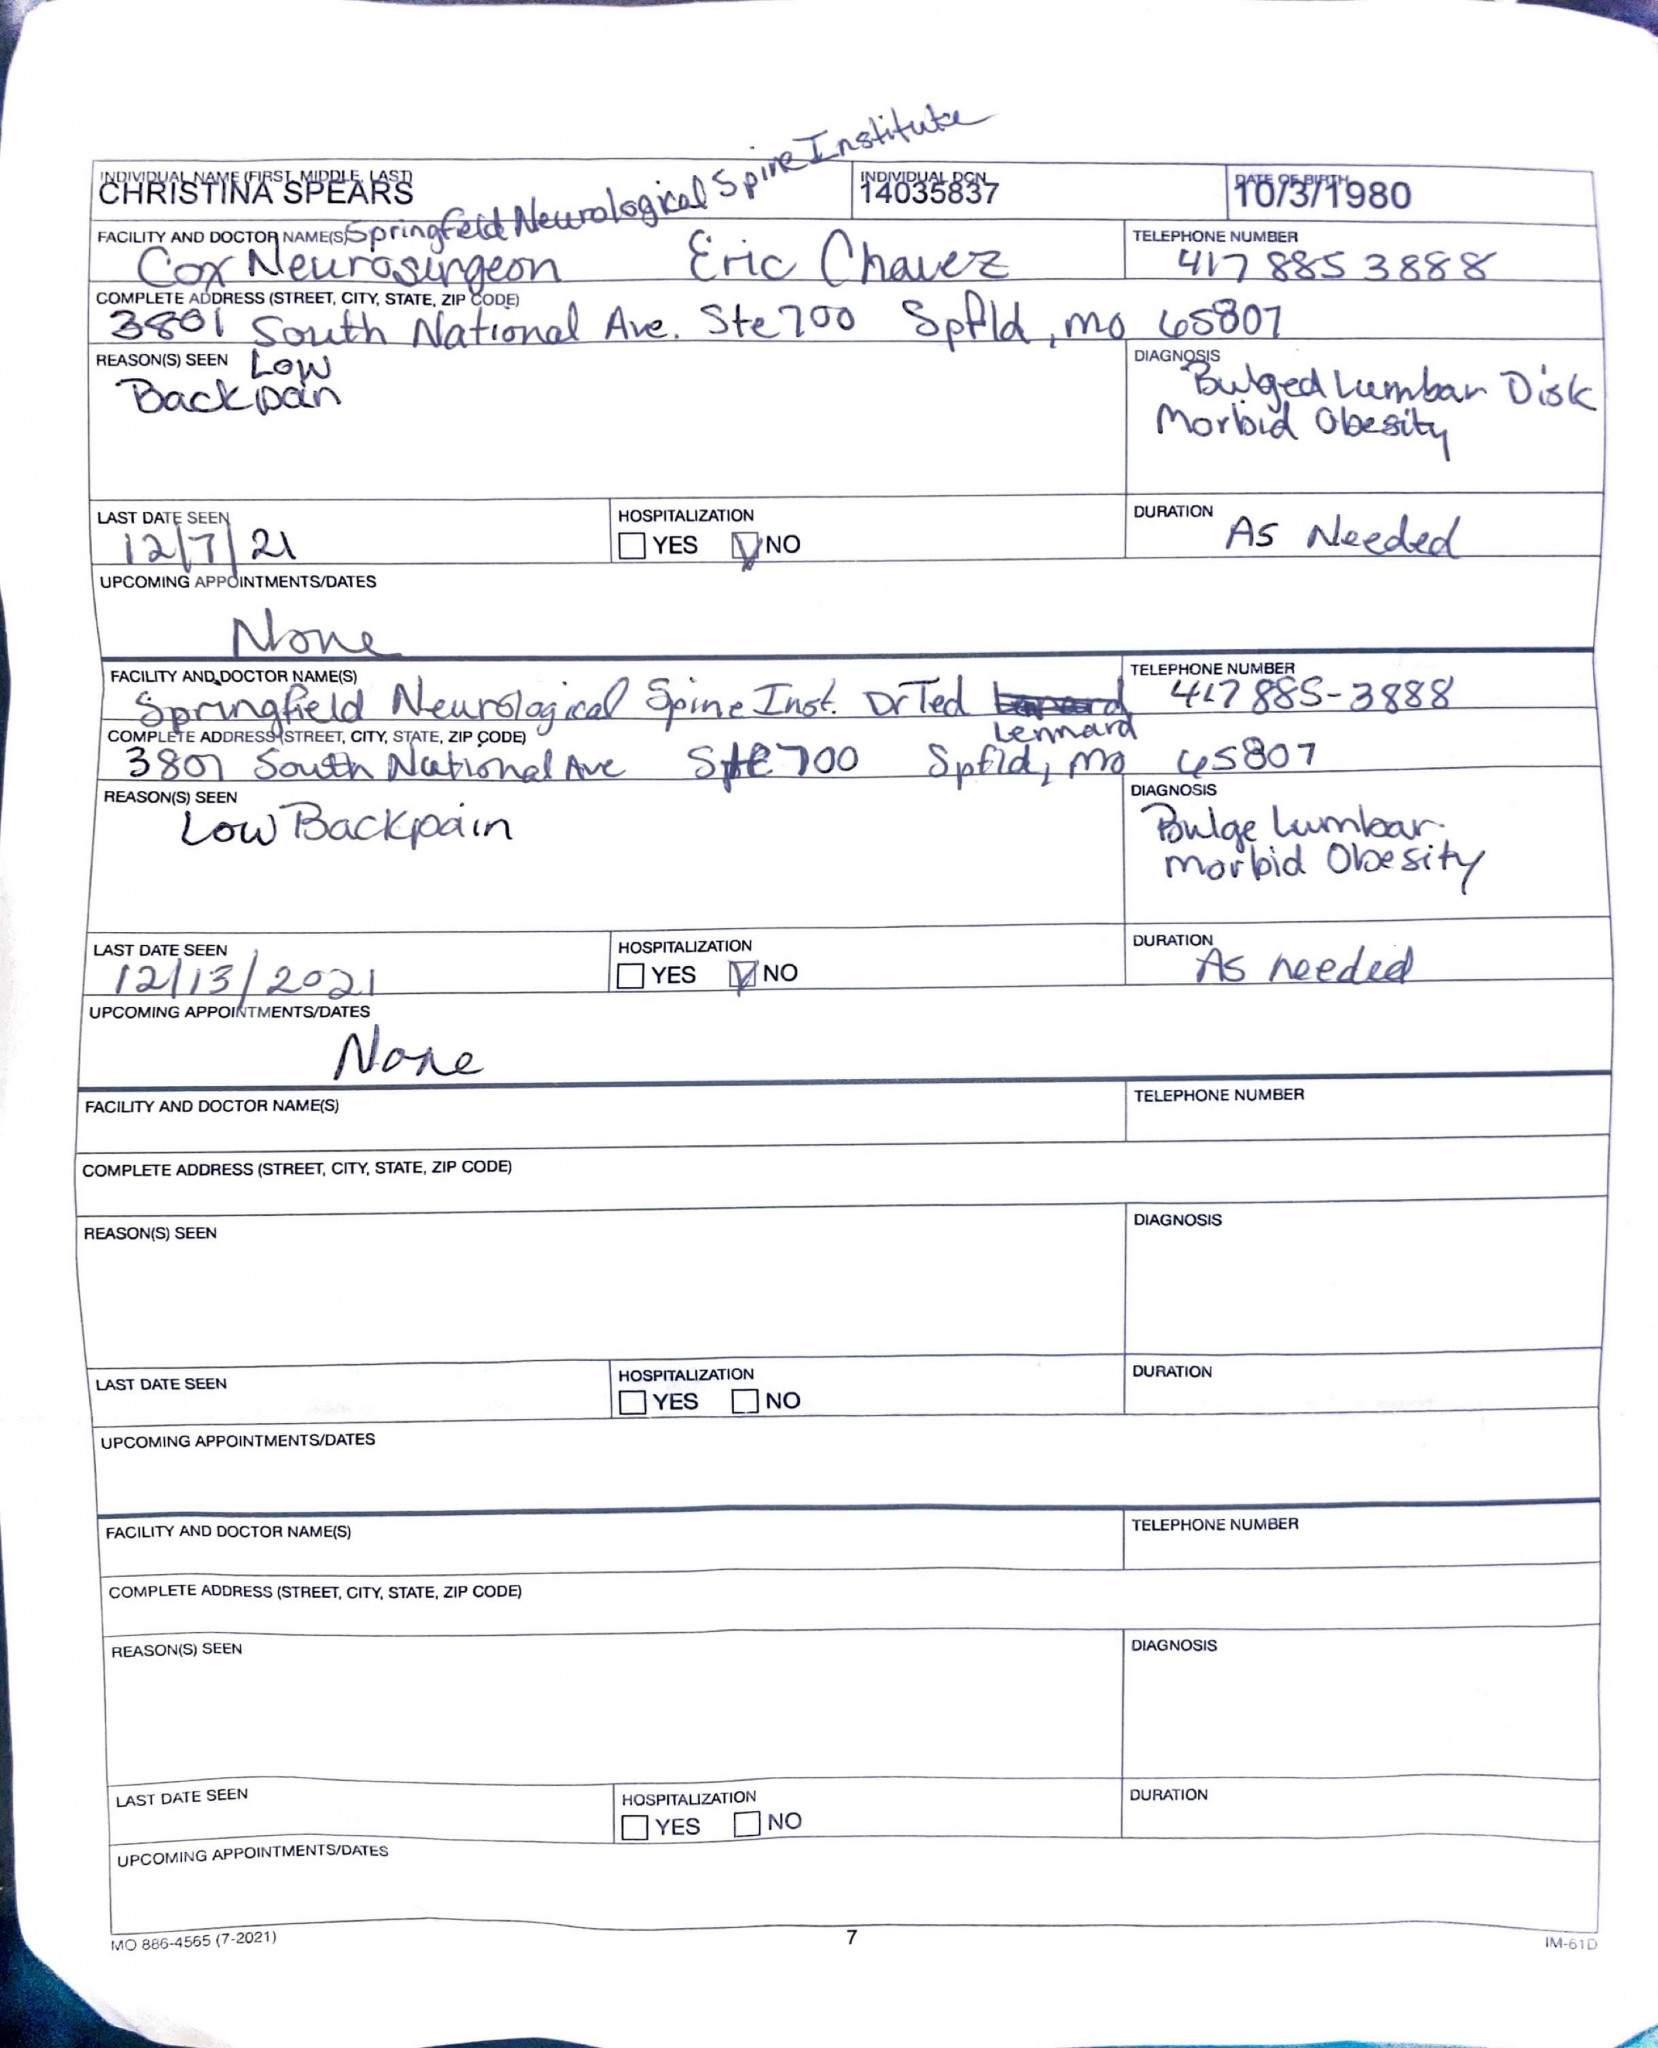 Springfield Neurological Spine Institute
INDIVIDUAL NAME (FIRST, MIDDLE, LAST) INDIVIDUAL DCN DATE OF BIRTH
CHRISTINA SPEARS 14035837 10/3/1980
FACILITY AND DOCTOR NAME(S) TELEPHONE NUMBER
Cox Neurosurgeon Eric Chavez 417 885 3888
COMPLETE ADDRESS (STREET, CITY, STATE, ZIP CODE)
3801 South National Ave. Ste 700 Spfld, mo 65807
REASON(S) SEEN Low DIAGNOSIS
Backpain Bulged Lumbar Disk
Morbid Obesity
LAST DATE SEEN HOSPITALIZATION DURATION
12/7/21 YES NO As Needed
UPCOMING APPOINTMENTS/DATES
None
FACILITY AND DOCTOR NAME(S) TELEPHONE NUMBER
Springfield Neurological Spine Inst. Dr Ted 417 885-3888
Lennard
COMPLETE ADDRESS (STREET, CITY, STATE, ZIP CODE)
3801 South National Ave Ste 700 Spfld, mo 65807
REASON(S) SEEN DIAGNOSIS
Low Backpain Bulge Lumbar
morbid Obesity
LAST DATE SEEN HOSPITALIZATION DURATION
12/13/2021 YES NO As needed
UPCOMING APPOINTMENTS/DATES
None
FACILITY AND DOCTOR NAME(S) TELEPHONE NUMBER
COMPLETE ADDRESS (STREET, CITY, STATE, ZIP CODE)
REASON(S) SEEN DIAGNOSIS
LAST DATE SEEN HOSPITALIZATION DURATION
YES NO
UPCOMING APPOINTMENTS/DATES
FACILITY AND DOCTOR NAME(S) TELEPHONE NUMBER
COMPLETE ADDRESS (STREET, CITY, STATE, ZIP CODE)
REASON(S) SEEN DIAGNOSIS
LAST DATE SEEN HOSPITALIZATION DURATION
YES NO
UPCOMING APPOINTMENTS/DATES
MO 886-4565 (7-2021) 7 IM-61D